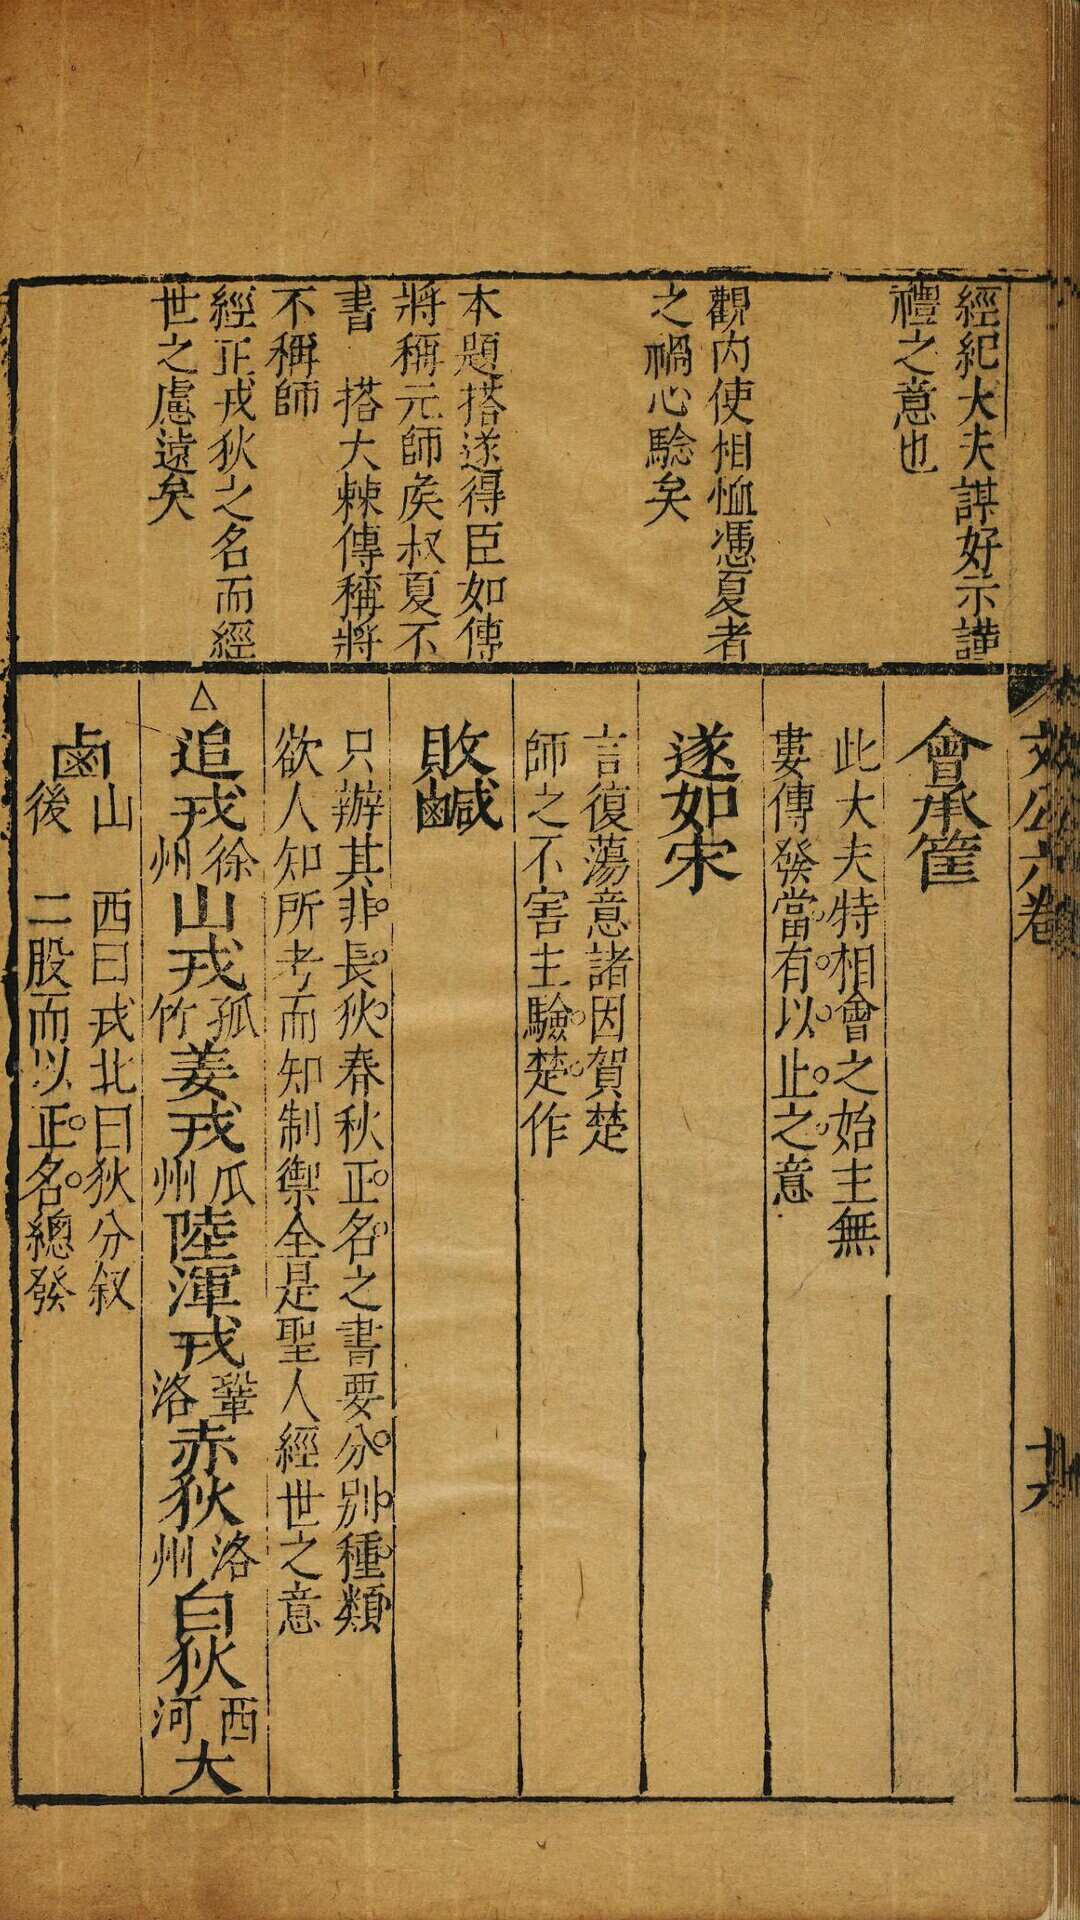 文公六卷
廿八
經紀大夫謀好示謹
禮之意也
觀內使相恤憑夏者
之禍心騐矣
本題搭遂得臣如傳
將稱元師矦叔夏不
書　搭大棘傳稱將
不稱師
經正戎狄之名而經
世之慮遠矣
會承筐
此大夫特相會之始主無
婁傳發當有以止之意
遂如宋
言復蕩意諸因賀楚
師之不害主驗楚作
敗鹹
只辦其非長狄春秋正名之書要分別種類
欲人知所考而知制禦全是聖人經世之意
△追戎徐州山戎孤竹姜戎瓜州陸渾戎鞏洛赤狄洛州白狄西河大
鹵山後　西曰戎北曰狄分叙
二股而以正名總發